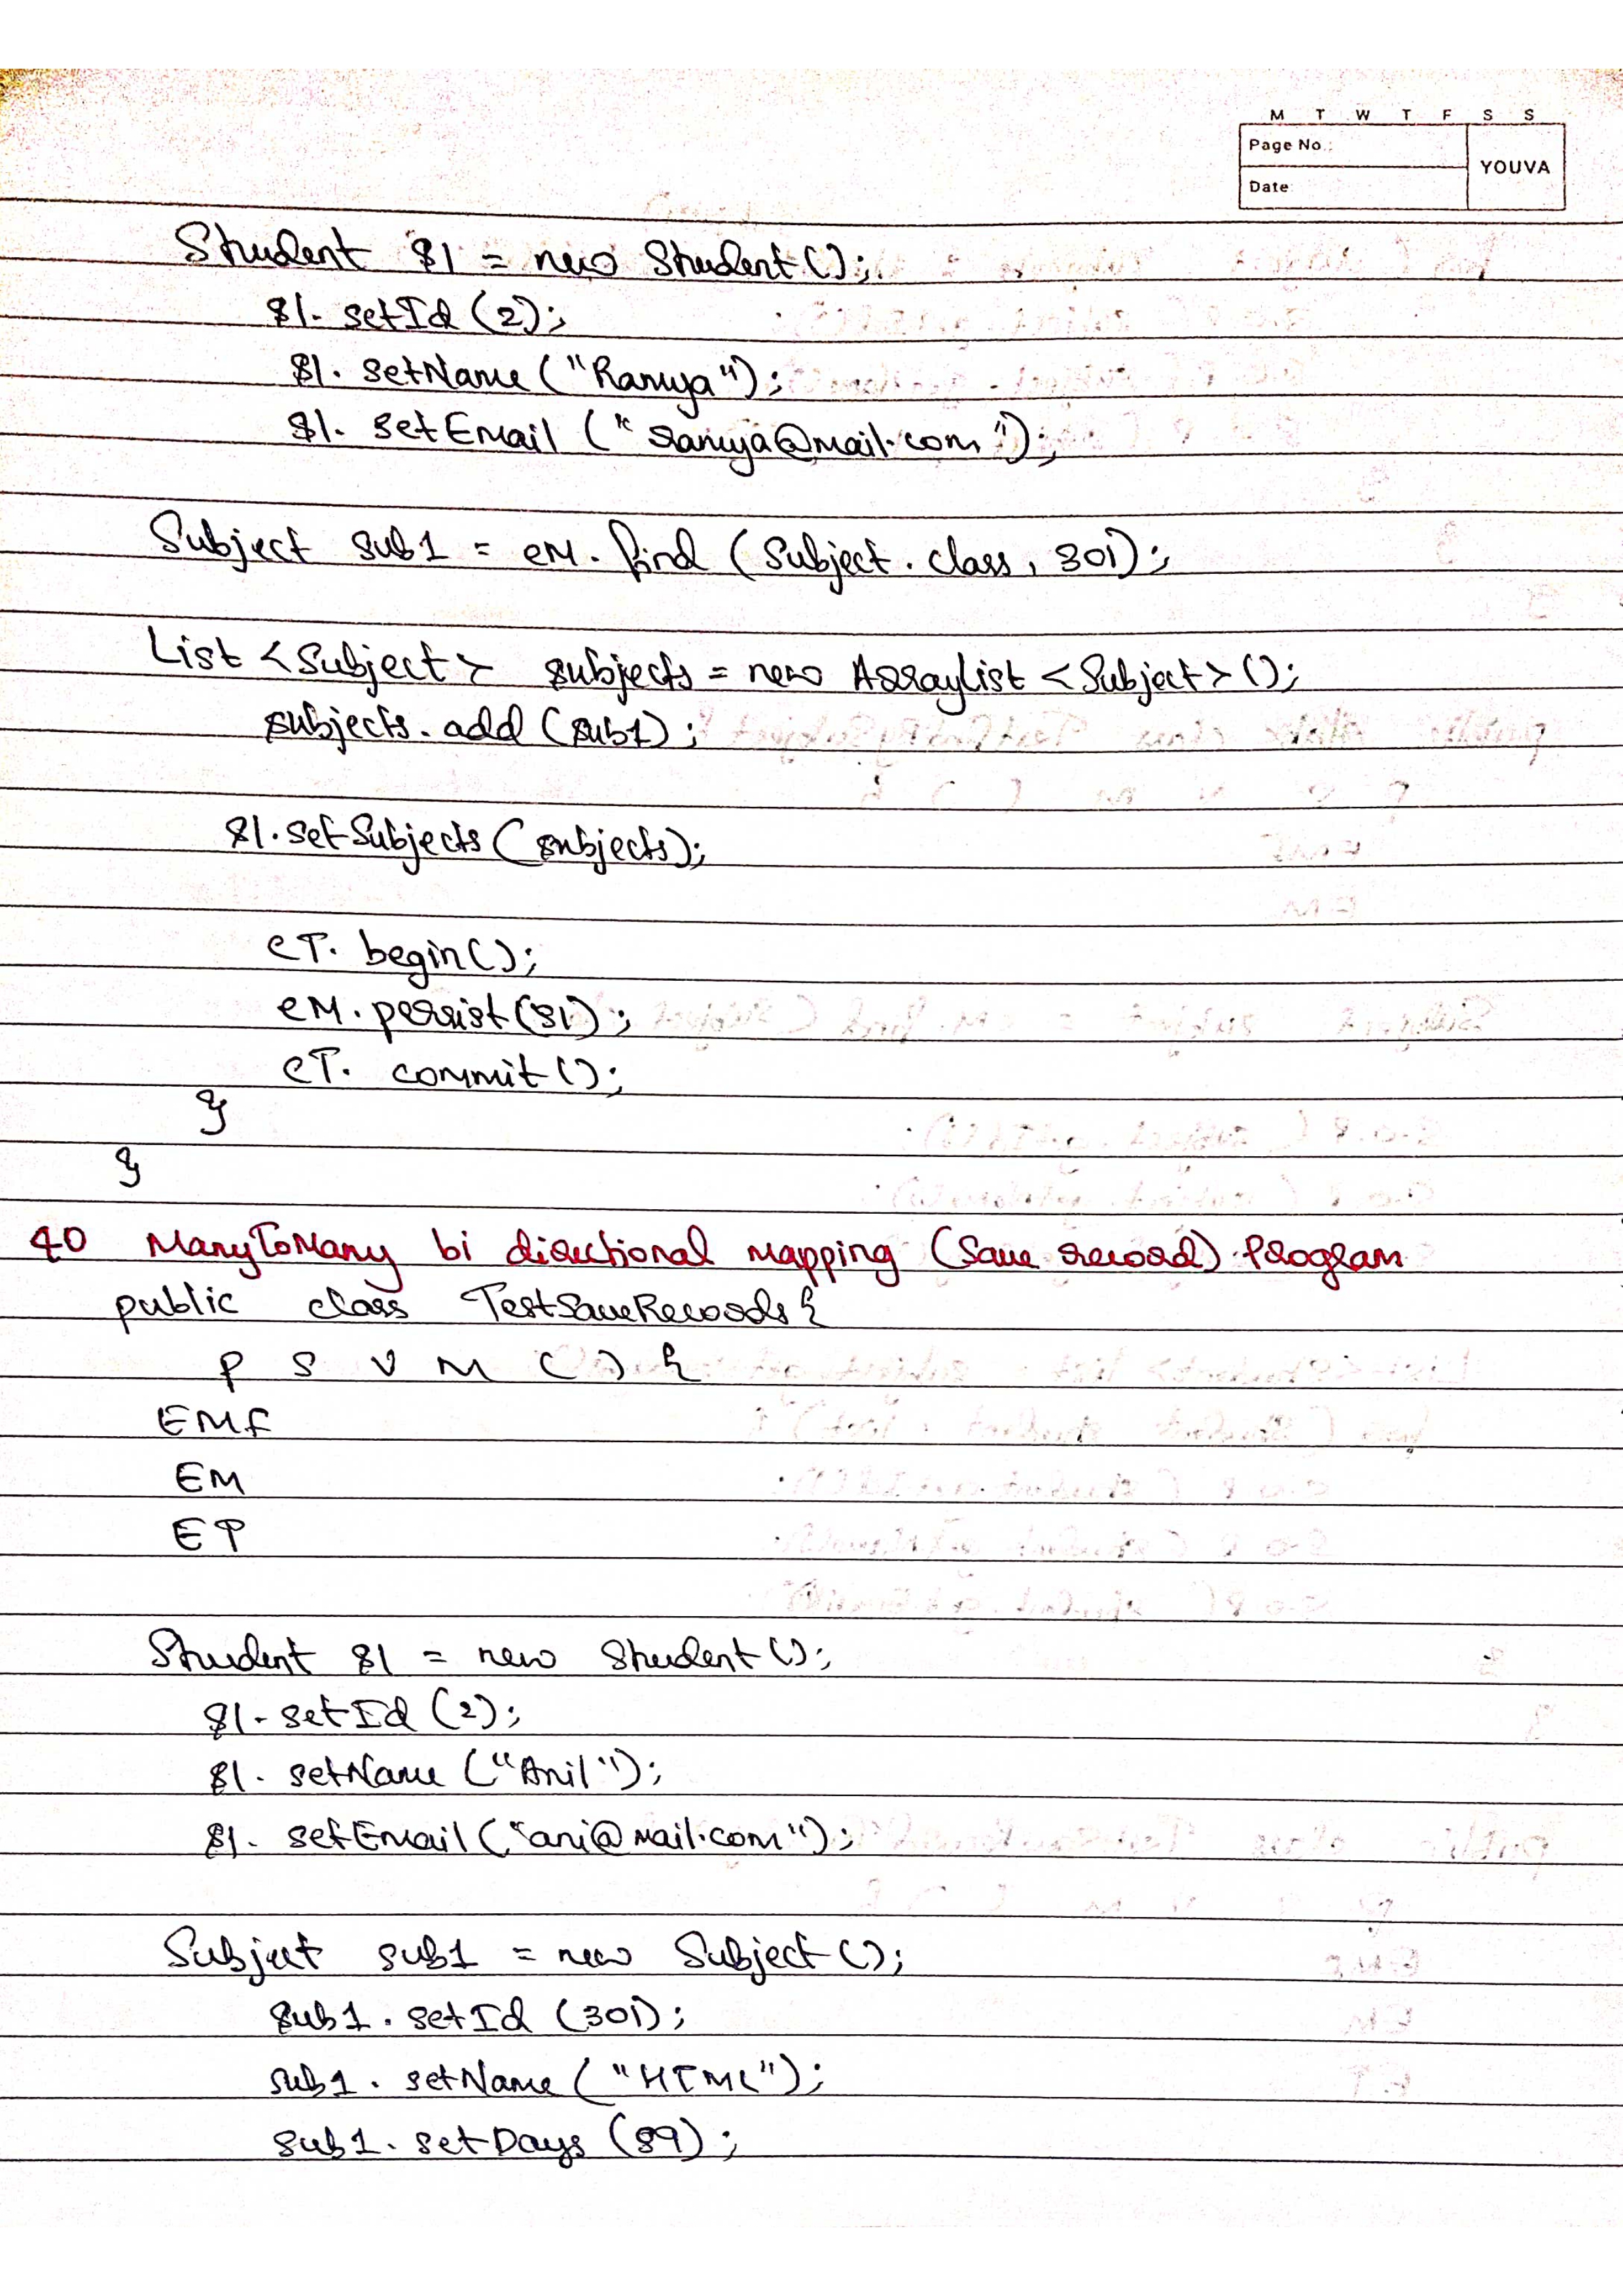 M T W T F S S
Page No.:
YOUVA
Date:
Student s1 = new Student();
s1. setId (2);
s1. setName ("Ramya");
s1. setEmail ("ramya@mail.com");
Subject sub1 = eM. find (Subject. class, 301);
List <Subject> subjects = new ArrayList <Subject> ();
subjects. add (sub1);
s1. setSubjects (subjects);
eT. begin();
eM. persist (s1);
eT. commit ();
}
}
40 ManyToMany bi directional mapping (Save record) Program
public class TestSaveRecords {
P S V M ( ) {
EMF
EM
ET
Student s1 = new Student ();
s1. setId (2);
s1. setName ("Anil");
s1. setEmail ("ani@mail.com");
Subject sub1 = new Subject ();
sub1. setId (301);
sub1. setName ("HTML");
sub1. setDays (89);